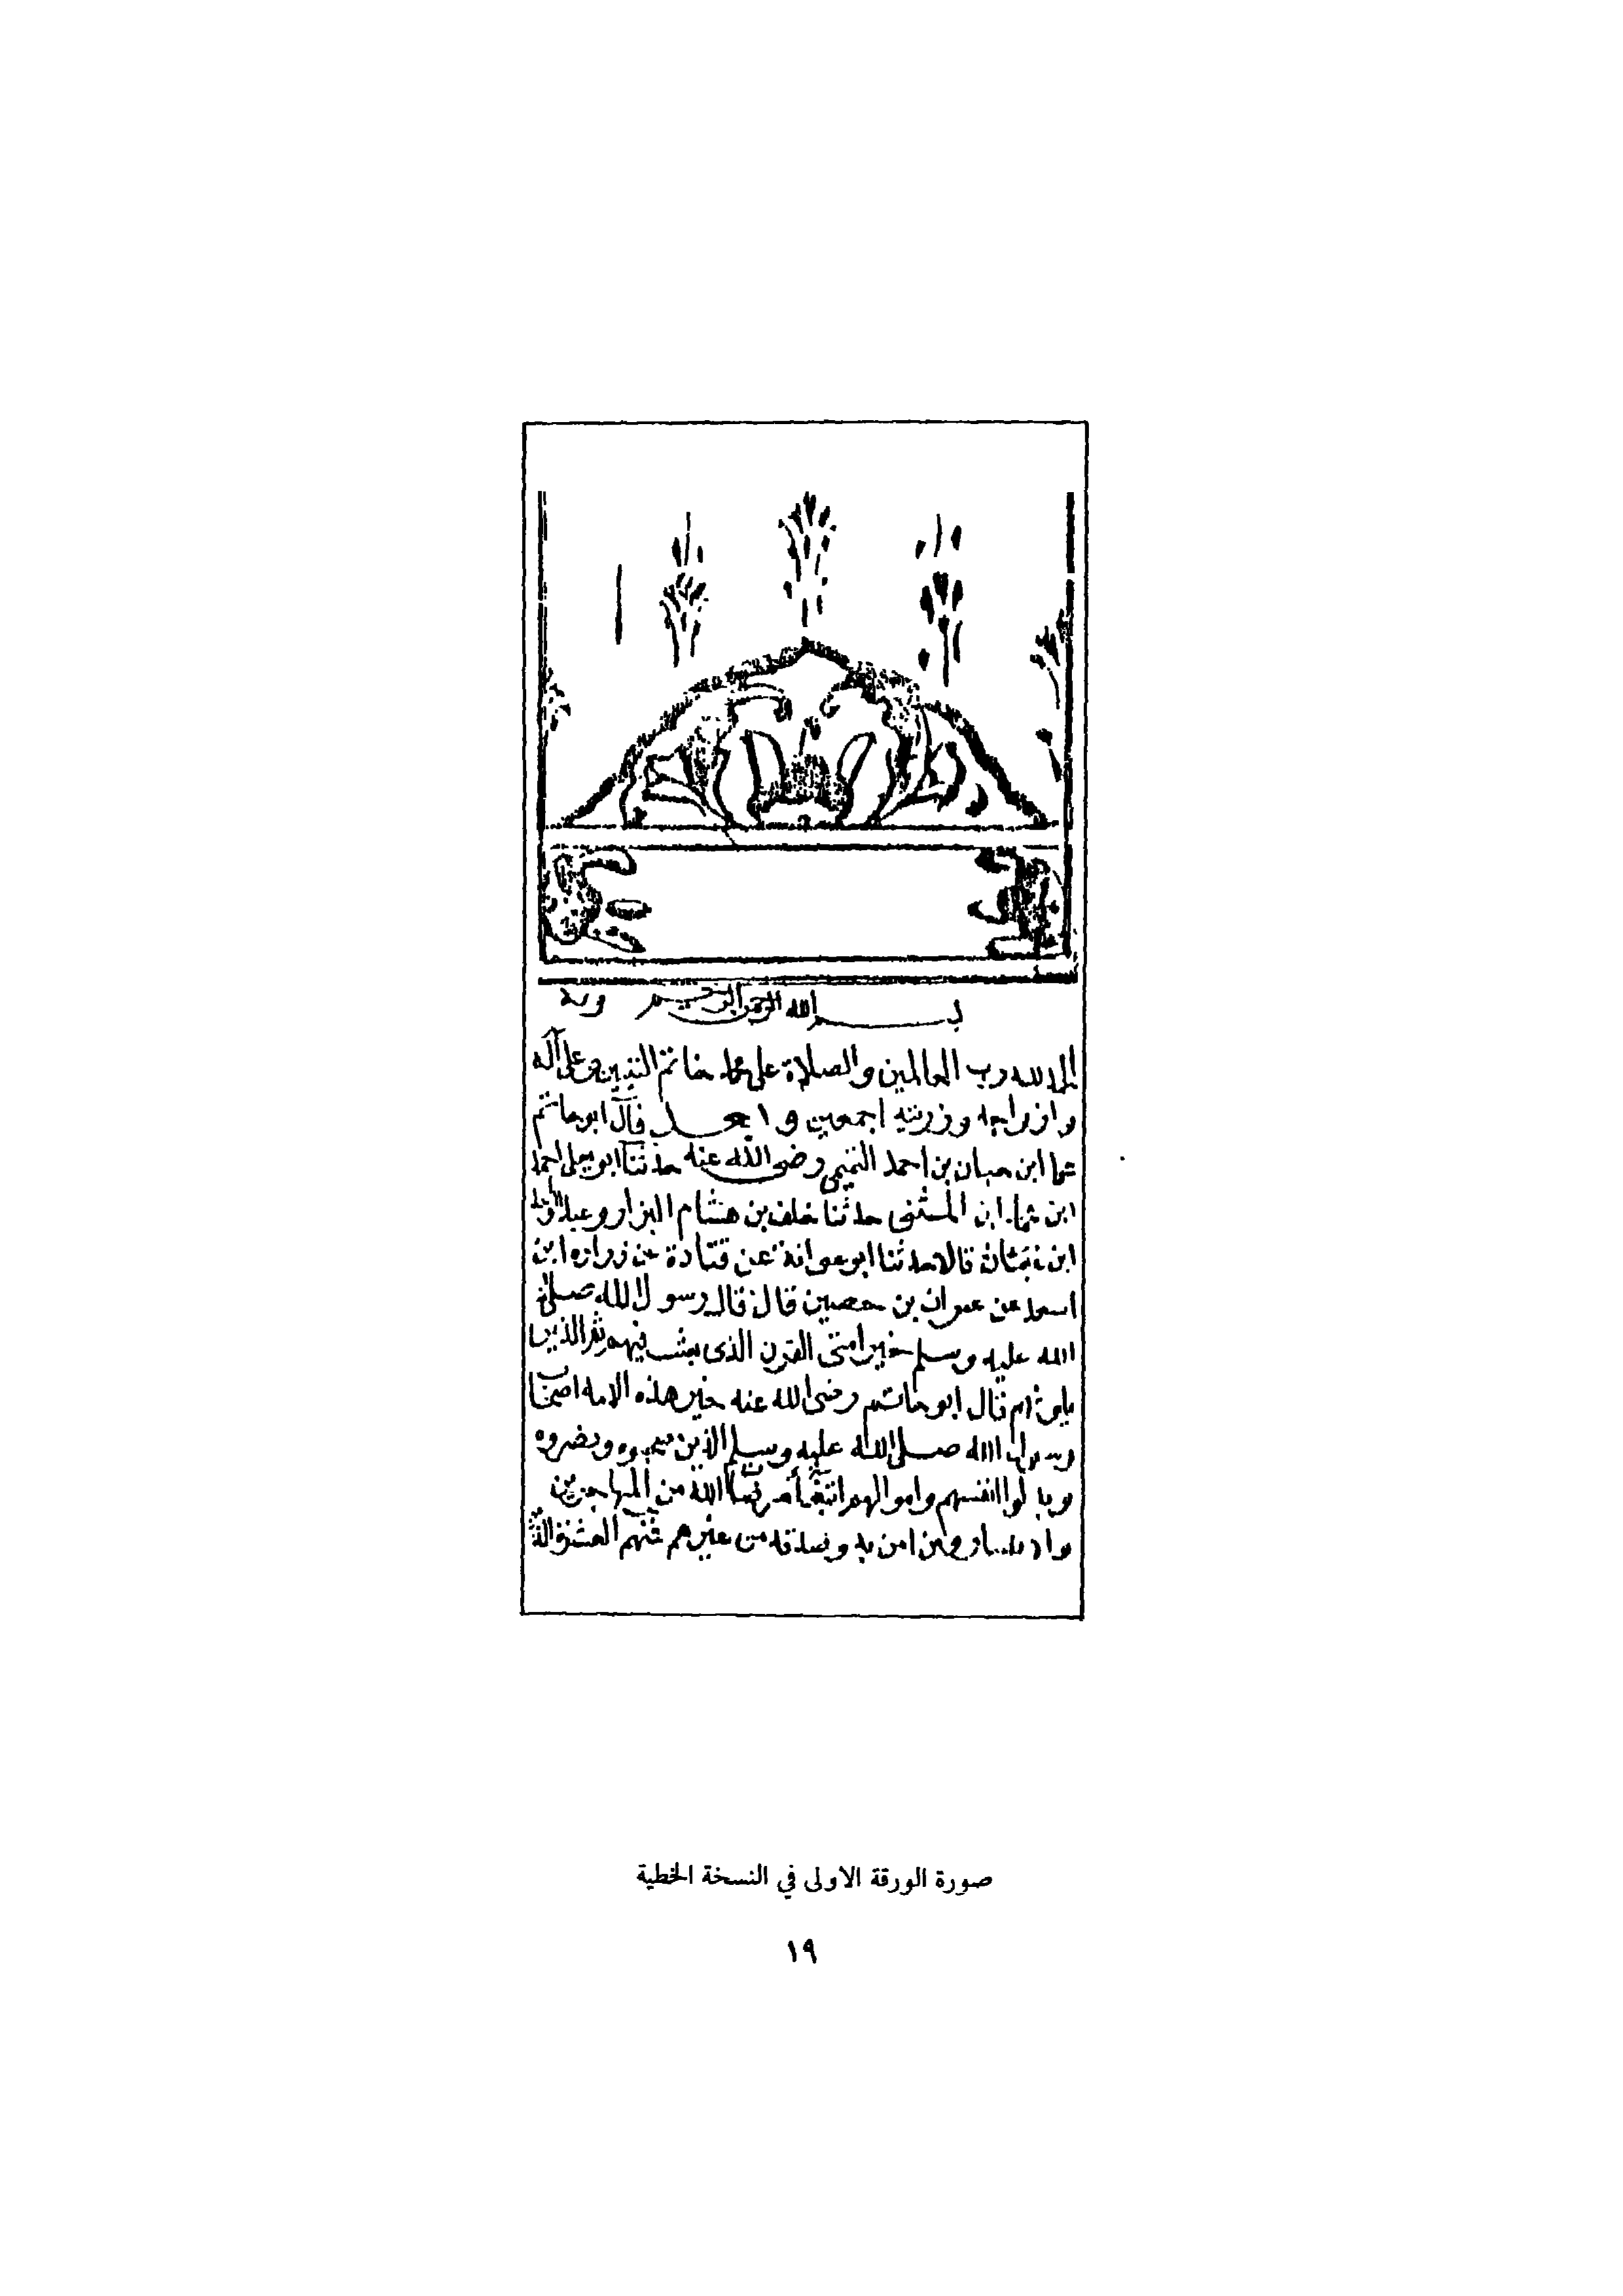 بسم الله الرحمن الرحيم وبه
الحمد لله رب العالمين والصلاة على محمد خاتم النبيين وعلى آله
وازواجه وذريته اجمعين وبعد قال ابو حاتم
محمد ابن حبان بن احمد التميمي رضي الله عنه حدثنا ابو يعلى احمد
ابن المثنى حدثنا خلف بن هشام البزار وعبد الواحد
ابن غياث قالا حدثنا ابو عوانة عن قتادة عن زراره ابن
عن عمران بن حصين قال قال رسول الله صلى
الله عليه وسلم خير امتى القرن الذى بعثت فيهم ثم الذين
يلونهم قال ابو حاتم رضى الله عنه خير هذه الامه اصحاب
رسول الله صلى الله عليه وسلم الذين صحبوه ونصروه
انفسهم واموالهم الله من المهاجرين
من امن به وصدقه من غيرهم فمنهم العشرة
صورة الورقة الاولى في النسخة الخطية
١٩